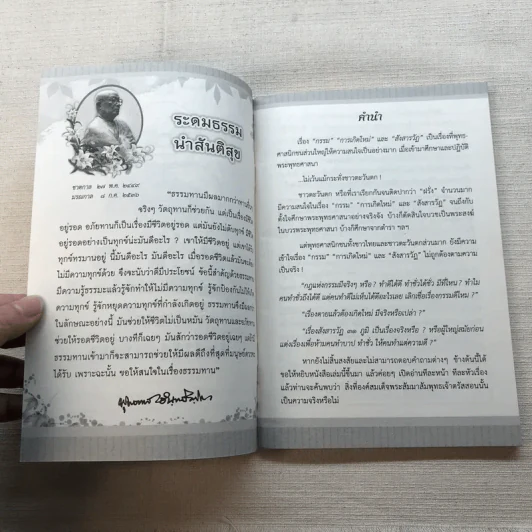 ระดมธรรม
นำสันติสุข
ชาตกาล ๒๗ พ.ค. ๒๔๔๙
มรณกาล ๘ ก.ค. ๒๕๓๖
"ธรรมทานมีผลมากกว่าทานอื่น
จริงๆ วัตถุทานก็ช่วยกัน แต่เป็นเรื่องมีชีวิต
อยู่รอด อภัยทานก็เป็นเรื่องมีชีวิตอยู่รอด แต่มันยังไม่ดับทุกข์ มี
อยู่รอดอย่างเป็นทุกข์น่ะมันดีอะไร ? เขาให้มีชีวิตอยู่ แต่เขาได้รับ
ทุกข์ทรมานอยู่ นี้มันดีอะไร มันดีอะไร เมื่อรอดชีวิตแล้วมันจะต้อง
ไม่มีความทุกข์ด้วย จึงจะนับว่าดีมีประโยชน์ ข้อนี้สำคัญด้วยธรรมทาน
มีความรู้ธรรมะแล้วรู้จักทำให้ไม่มีความทุกข์ รู้จักป้องกันไม่ให้เกิด
ความทุกข์ รู้จักหยุดความทุกข์ที่กำลังเกิดอยู่ ธรรมทานจึงมีผลกว่า
ในลักษณะอย่างนี้ มันช่วยให้ชีวิตไม่เป็นหมัน วัตถุทานและอภัยทาน
ช่วยให้รอดชีวิตอยู่ บางทีก็เฉยๆ มันสักว่ารอดชีวิตอยู่เฉยๆ แต่ถ้ามี
ธรรมทานเข้ามาก็จะสามารถช่วยให้มีผลดีถึงที่สุดที่มนุษย์ควรจะ
ได้รับ เพราะฉะนั้น ขอให้สนใจในเรื่องธรรมทาน"
คำนำ
เรื่อง "กรรม" "การเกิดใหม่" และ "สังสารวัฏ" เป็นเรื่องที่พุทธ-
ศาสนิกชนส่วนใหญ่ให้ความสนใจเป็นอย่างมาก เมื่อเข้ามาศึกษาและปฏิบัติ
พระพุทธศาสนา
...ไม่เว้นแม้กระทั่งชาวตะวันตก !
ชาวตะวันตก หรือที่เราเรียกกันจนติดปากว่า "ฝรั่ง" จำนวนมาก
มีความสนใจในเรื่อง "กรรม" "การเกิดใหม่" และ "สังสารวัฏ" จนถึงกับ
ตั้งใจศึกษาพระพุทธศาสนาอย่างจริงจัง บ้างก็ตัดสินใจบวชเป็นพระสงฆ์
ในบวรพระพุทธศาสนา บ้างก็ศึกษาจากตำรา ฯลฯ
แต่พุทธศาสนิกชนทั้งชาวไทยและชาวตะวันตกส่วนมาก ยังมีความ
เข้าใจเรื่อง "กรรม" "การเกิดใหม่" และ "สังสารวัฏ" ไม่ถูกต้องตามความ
เป็นจริง !
"กฎแห่งกรรมมีจริงๆ หรือ ? ทำดีได้ดี ทำชั่วได้ชั่ว มีที่ไหน ? ทำไม
คนทำชั่วถึงได้ดี แต่คนทำดีไม่เห็นได้ดีอะไรเลย เลิกเชื่อเรื่องกรรมดีไหม ?"
"เรื่องตายแล้วต้องเกิดใหม่ มีจริงหรือเปล่า ?"
"เรื่องสังสารวัฏ ๓๑ ภูมิ เป็นเรื่องจริงหรือ ? หรือผู้ใหญ่สมัยก่อน
แต่งเรื่องเพื่อห้ามคนทำบาป ทำชั่ว ให้คนทำแต่ความดี ?"
หากยังไม่สิ้นสงสัยและไม่สามารถตอบคำถามต่างๆ ข้างต้นนี้ได้
ขอให้หยิบหนังสือเล่มนี้ขึ้นมา แล้วค่อยๆ เปิดอ่านทีละหน้า ทีละหัวเรื่อง
แล้วท่านจะค้นพบว่า สิ่งที่องค์สมเด็จพระสัมมาสัมพุทธเจ้าตรัสสอนนั้น
เป็นความจริงหรือไม่